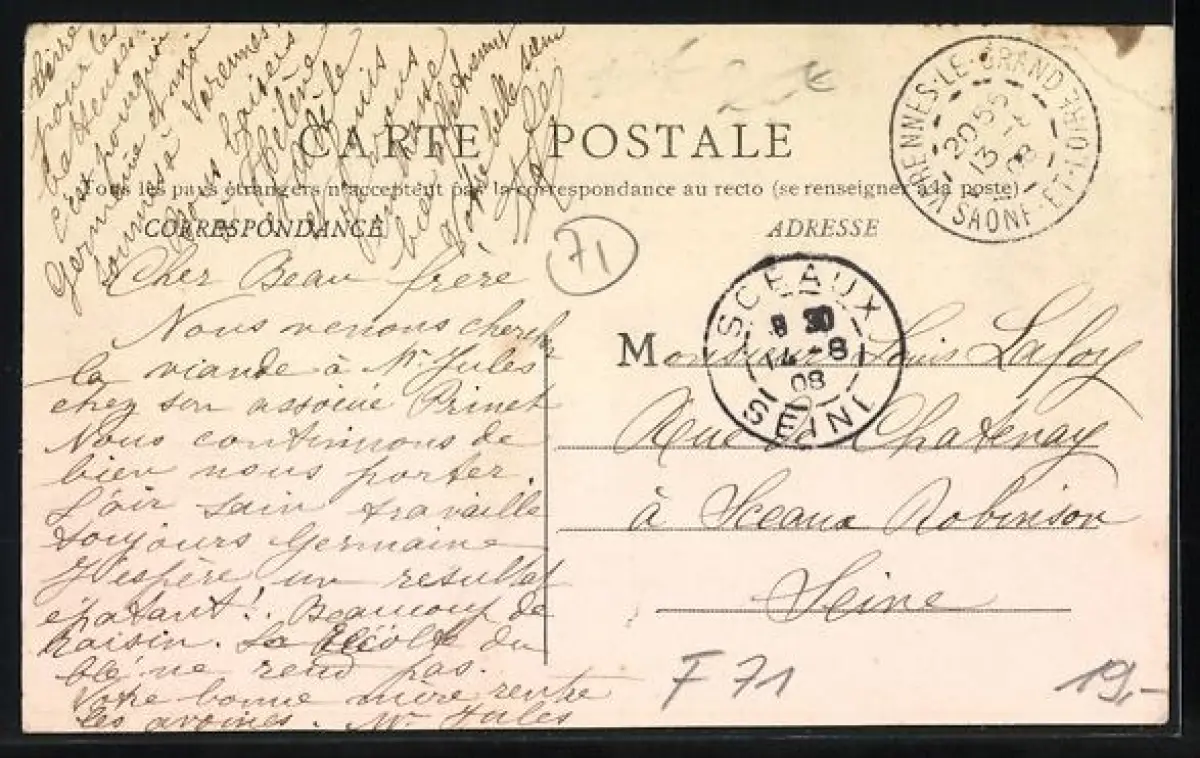 CARTE POSTALE
Tous les pays étrangers n'acceptent pas la correspondance au recto (se renseigner à la poste)
CORRESPONDANCE
ADRESSE
Cher Beau frère
Nous venons cherch
la viande à Mr Jules
chez son associé Prinet
Nous continuons de
bien nous porter.
L'air sain travaille
toujours Germaine
J'espère un resultat
épatant! Beaucoup de
raisin. La récolte du
blé ne rend pas.
Votre bonne mère rentre
les avoines. Mr Jules
pour les
batteuses.
C'est pourquoi
Germaine et moi
sommes à Varennes.
bons baisers
Hélène
Adèle
je vous
embrasse
bien
Votre belle sœur
71
VARENNES-LE-GRAND
SAÔNE-ET-LOIRE
13
08
SCEAUX
8 30
14-8
08
SEINE
Monsieur Louis Lafoy
Rue de Chatenay
à Sceaux Robinson
Seine
F 71
19,-